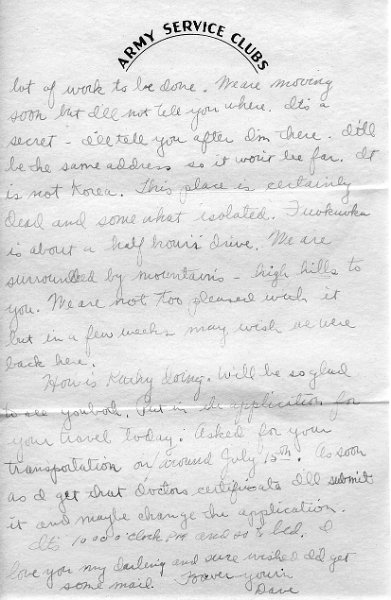 ARMY SERVICE CLUBS
lot of work to be done. We are moving
soon but I'll not tell you where. It's a
secret - I'll tell you after I'm there. It'll
be the same address so it won't be far. It
is not Korea. This place is certainly
dead and some what isolated. Fuokuoka
is about a half hours drive. We are
surrounded by mountains - high hills to
you. We are not too pleased with it
but in a few weeks may wish we were
back here.
How is Kathy doing. Will be so glad
to see you both. Put in the application for
your travel today. Asked for your
transportation on/around July 15th. As soon
as I get that doctors certificate I'll submit
it and maybe change the application.
It's 10:00 o'clock PM and so to bed. I
love you my darling and sure wished I'd get
some mail. Forever yours
Dave